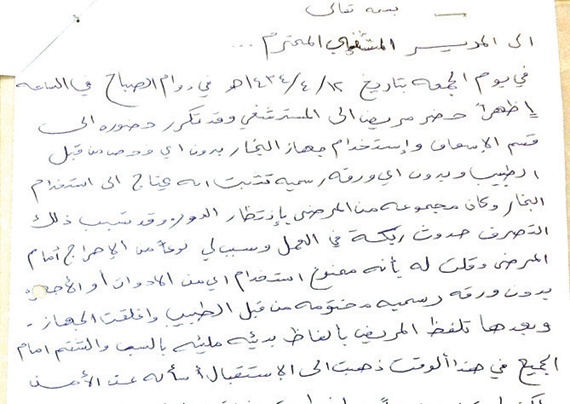 بسمه تعالى
الى المدير المشفى المحترم ...
في يوم الجمعه بتاريخ ١٤٣٤/٤/١٢هـ في دوام الصباح في الساعه
١ ظهراً حضر مريض الى المستشفى وقد تكرر حضوره الى
قسم الإسعاف وإستخدام جهاز البخار بدون اي وحص من قبل
الطبيب وبدون اي ورقه رسميه تثبت انه يحتاج الى استخدام
البخار وكان مجموعه من المرضى بإنتظار الدور وقد تسبب ذلك
التصرف حدوث ربكة في العمل وسبب لي نوعاً من الاحراج أمام
المرضى وقلت له بأنه ممنوع استخدام اي من الادوات أو الأجهزه
بدون ورقه رسميه ومختومه من قبل الطبيب واغلقت الجهاز -
وبعدها تلفظ المريض بألفاظ بذيئه مليئه بالسب والشتم امام
الجميع في هذا ألوقت ذهبت الى الاستقبال أسأله عن الأمن